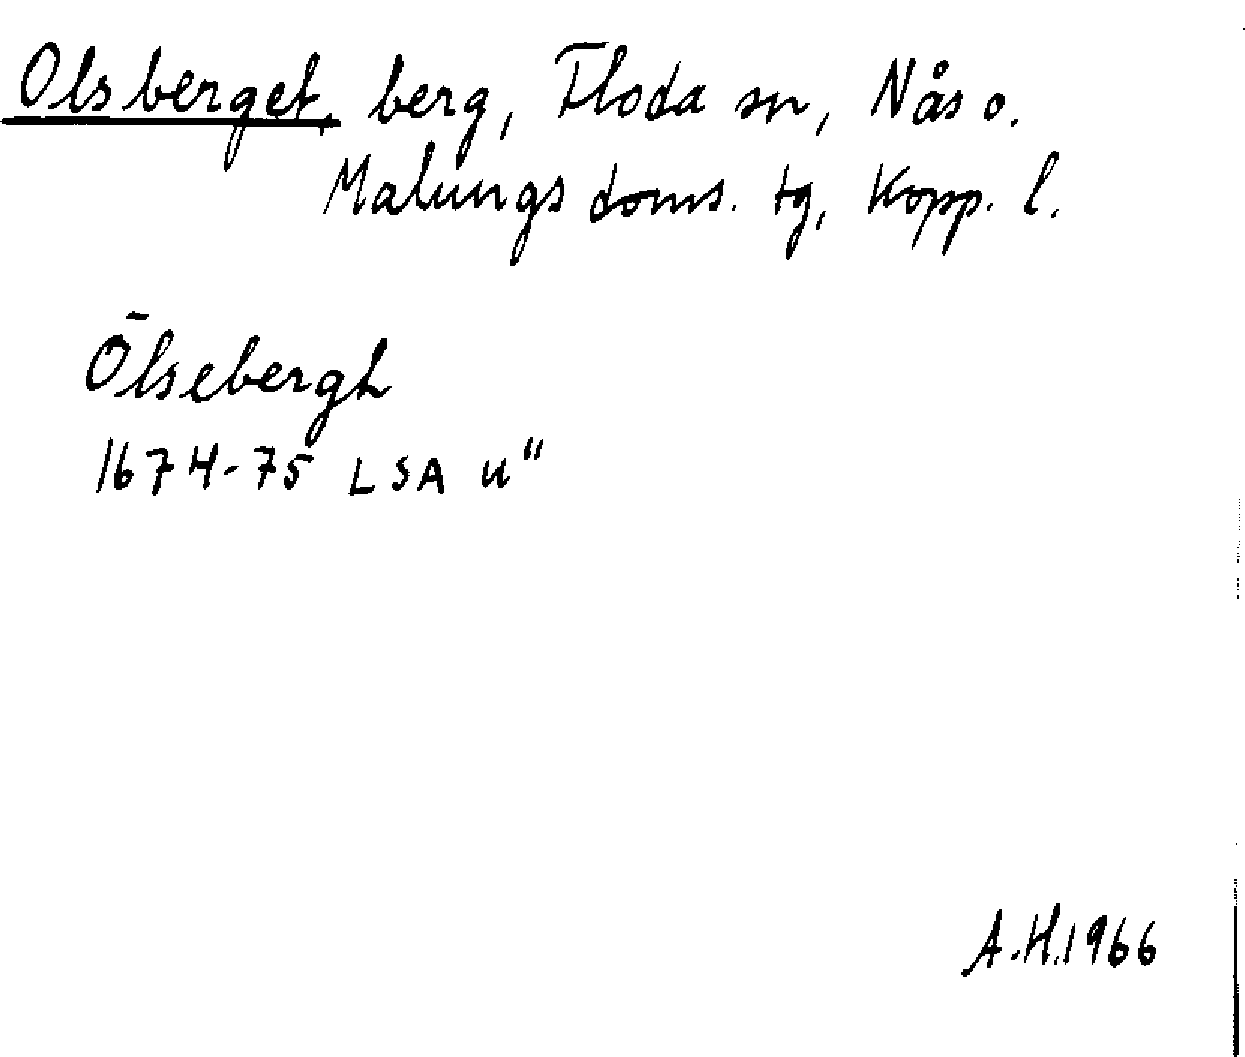 Olsberget, berg, Floda sn, Nås o.
Malungs doms. tg, Kopp. l.
Ōlsebergh
1674-75 LSA u"
A.H.1966